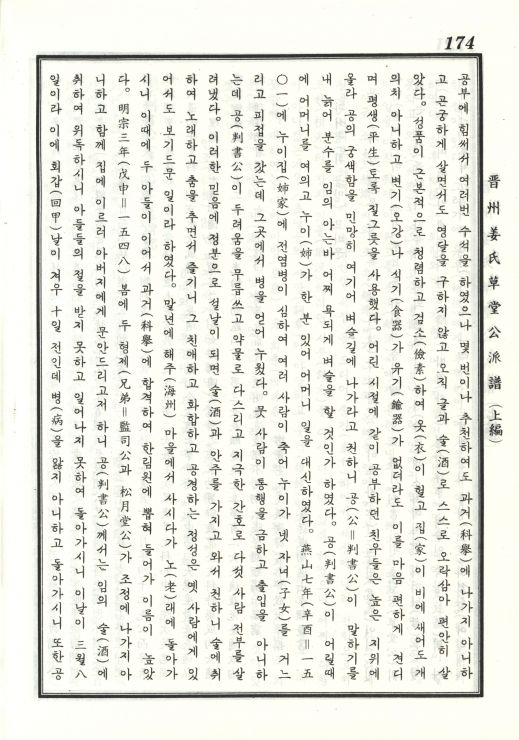 174
晋州姜氏草堂公派譜(上編)
공부에 힘써서 여러번 수석을 하였으나 몇 번이나 추천하여도 과거(科擧)에 나가지 아니하
고 곤궁하게 살면서도 명달을 구하지 않고 오직 글과 술(酒)로 스스로 오락삼아 편안히 살
았다。성품이 근본적으로 청렴하고 검소(儉素)하여 옷(衣)이 헐고 집(家)이 비에 새어도 개
의치 아니하고 변기(오강)나 식기(食器)가 유기(鍮器)가 없더라도 이를 마음 편하게 견디
며 평생(平生)토록 질그릇을 사용했다。어린 시절에 같이 공부하던 친우들은 높은 지위에
올라 공의 궁색함을 민망히 여기어 벼슬길에 나가라고 권하니 공(公=判書公)이 말하기를
내 늙어 분수를 임의 아는바 어찌 욕되게 벼슬을 할 것인가 하였다。공(判書公)이 어릴때
에 어머니를 여의고 누이(姉)가 한 분 있어 어머니 일을 대신하였다。燕山七年(辛酉=一五
〇一)에 누이집(姉家)에 전염병이 심하여 여러 사람이 죽어 누이가 넷 자녀(子女)를 거느
리고 피접을 갔는데 그곳에서 병을 얻어 누웠다。뭇 사람이 통행을 금하고 출입을 아니하
는데 공(判書公)이 두려움을 무릅쓰고 약물로 다스리고 지극한 간호로 다섯 사람 전부를 살
려냈다。이러한 믿음에 정분으로 설날이 되면 술(酒)과 안주를 가지고 와서 권하니 술에 취
하여 노래하고 춤을 추면서 즐기니 그 친애하고 화합하고 공경하는 정성은 옛 사람에게 있
어서도 보기드문 일이라 하였다。말년에 해주(海州) 마을에서 사시다가 노(老)래에 돌아가
시니 이때에 두 아들이 이어서 과거(科擧)에 합격하여 한림원에 뽑혀 들어가 이름이 높았
다。明宗三年(戊申=一五四八) 봄에 두 형제(兄弟=監司公과 松月堂公)가 조정에 나가지 아
니하고 함께 집에 이르러 아버지에게 문안드리고저 하니 공(判書公)께서는 임의 술(酒)에
취하여 위독하시니 아들들의 절을 받지 못하고 일어나지 못하여 돌아가시니 이날이 三월八
일이라 이에 회갑(回甲)날이 겨우 十일 전인데 병(病)을 앓지 아니하고 돌아가시니 또한공